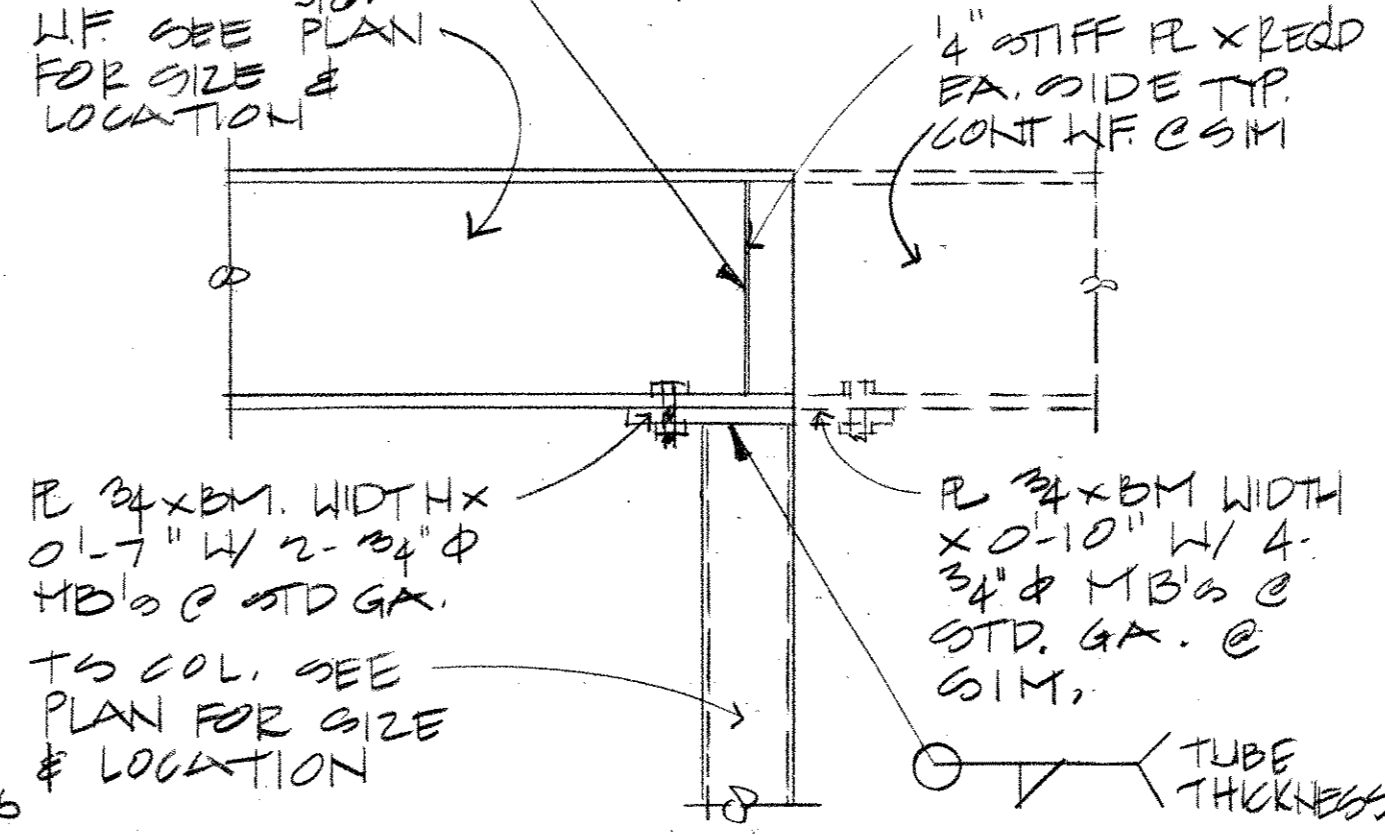 W.F. SEE PLAN
FOR SIZE &
LOCATION
1/4" STIFF PL X REQD
EA. SIDE TYP.
CONT WF. @ SIM
PL 3/4 X BM. WIDTH X
0'-7" W/ 2- 3/4" Φ
MB'S @ STD GA.
TS COL. SEE
PLAN FOR SIZE
& LOCATION
PL 3/4 X BM WIDTH
X 0'-10" W/ 4-
3/4" Φ MB'S @
STD. GA. @
SIM.
TUBE
THICKNESS